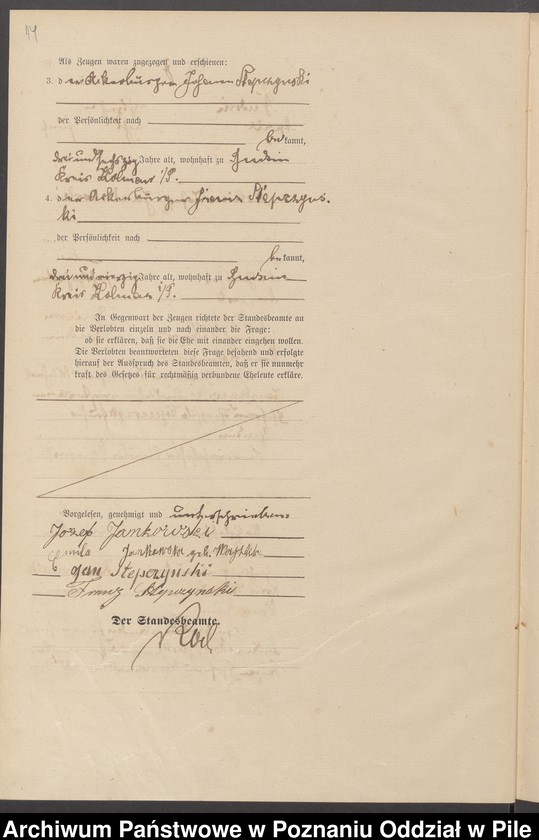 14
Als Zeugen waren zugezogen und erschienen:
3. der Ackerbürger Johann Stepczynski
der Persönlichkeit nach
bekannt,
dreiundsechszig Jahre alt, wohnhaft zu
Kreis Kolmar i/P.
4. der Ackerbürger Franz Stepczyns-
ki
der Persönlichkeit nach
bekannt,
dreiundvierzig Jahre alt, wohnhaft zu
Kreis Kolmar i/P.
In Gegenwart der Zeugen richtete der Standesbeamte an
die Verlobten einzeln und nach einander die Frage:
ob sie erklären, daß sie die Ehe mit einander eingehen wollen.
Die Verlobten beantworteten diese Frage bejahend und erfolgte
hierauf der Ausspruch des Standesbeamten, daß er sie nunmehr
kraft des Gesetzes für rechtmäßig verbundene Eheleute erkläre.
Vorgelesen, genehmigt und unterschrieben
Jozef Jankowski
Jankowska geb.
Jan Stepczynski
Franz Stepczynski
Der Standesbeamte.
Archiwum Państwowe w Poznaniu Oddział w Pile